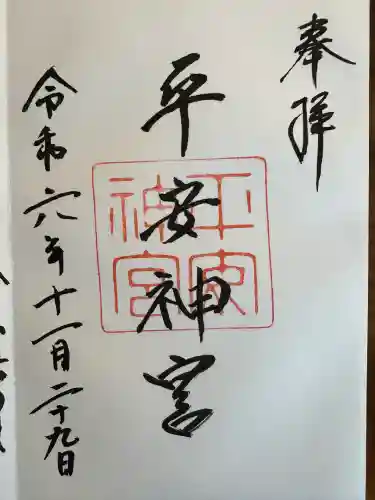 奉拝
平安神宮
平安神宮
令和六年十一月二十九日